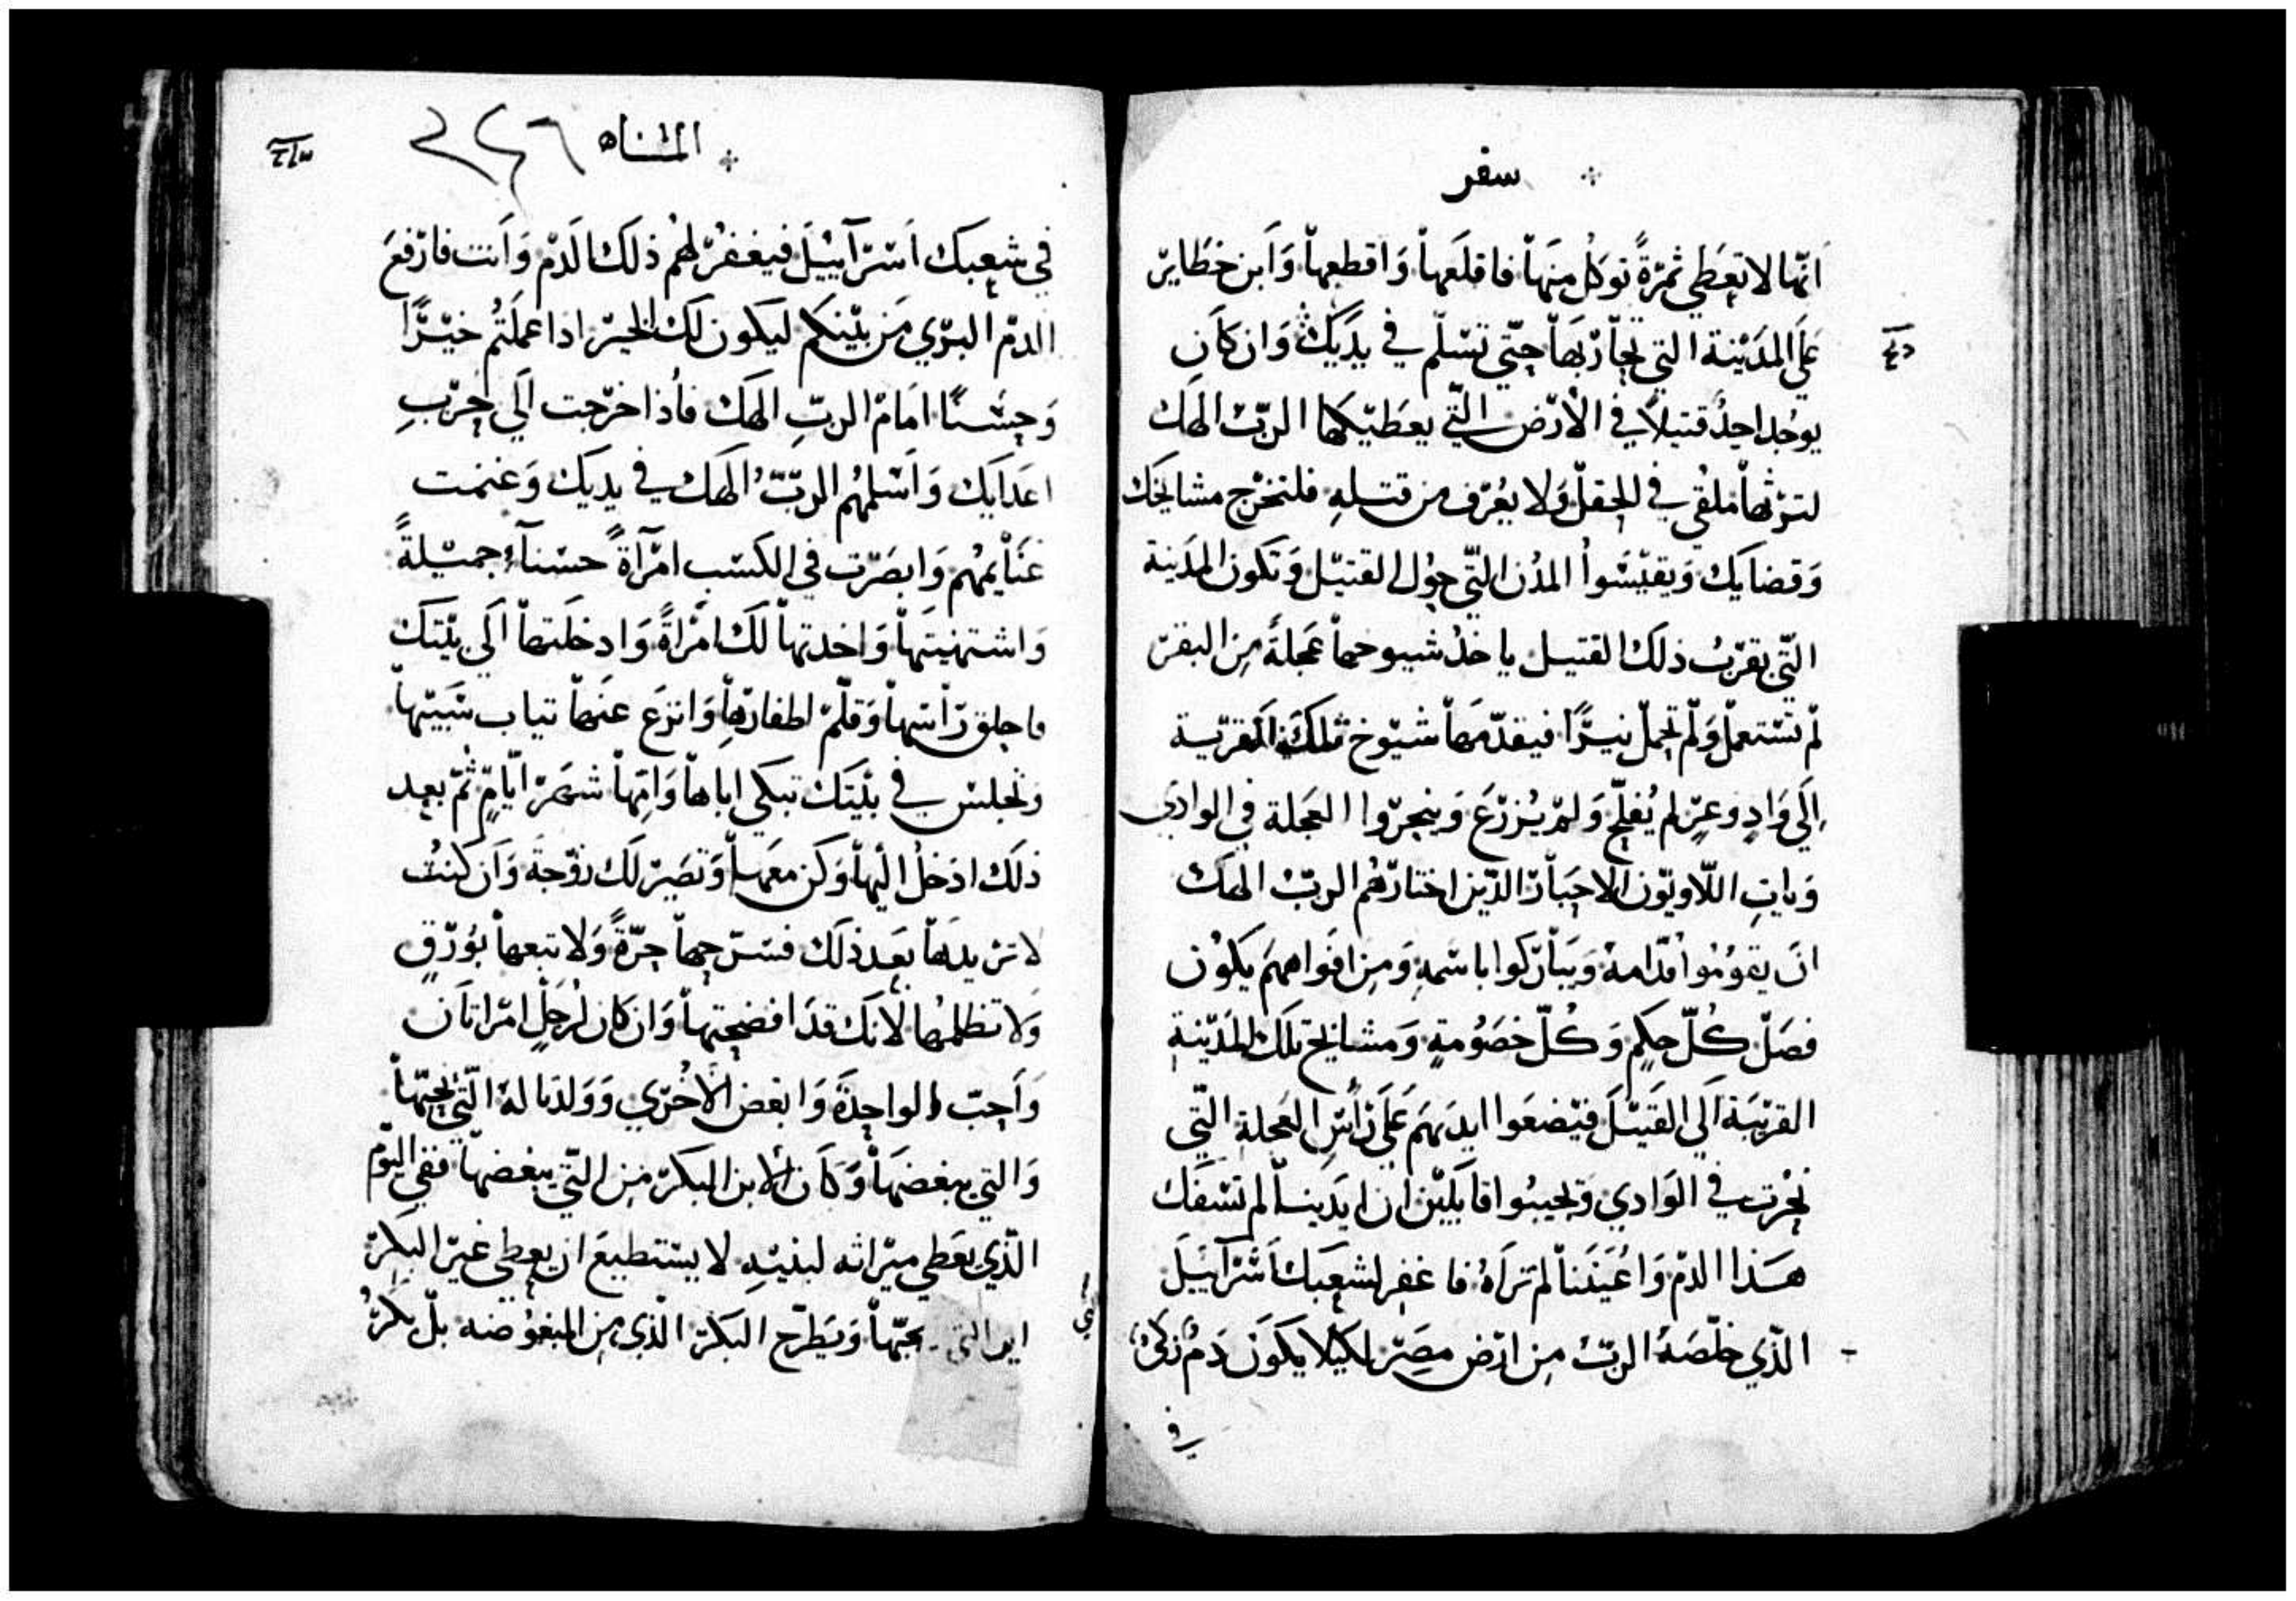 سفر
انّها لا تعطي ثمرةً توكل منها فاقلعها واقطعها وابن خطاير
على المدينة التي تحاربها حتّي تسلم في يديك وان كان
يوجد احدُ قتيلاً في الارض التّي يعطيكها الربّ الهك
لترثها ملقى في الحقل ولا يعرف من قتله فلتخرج مشايخك
وقضايك ويقيسوا المدن التّي حول القتيل وتكون المدينة
التّي بقرب ذلك القتيل ياخذ شيوخها عجلةً من البقر
لم تستعمل ولم تحمل نيرًا فيقدّمها شيوخ تلك القرية
الي وادٍ وعرٍ لم يفلح ولم يزرع وينحروا العجلة في الوادي
ويات اللاويّون الاحبار الذين اختارهم الربّ الهك
ان يقوموا قدّامه ويباركوا باسمه ومن افواههم يكون
فصل كلّ حكمٍ وكلّ خصومةٍ ومشايخ تلك المدينة
القريبة الي القتيل فيضعوا ايديهم على راس العجلة التّي
نحرت في الوادي ويجيبوا قايلين ان ايدينا لم تسفك
هذا الدم واعيننا لم تراه فاغفر لشعبك اسرآييل
الذّي خلّصه الربّ من ارض مصر لكيلا يكون دم زكي
في
المثناه ٢٤٦
في شعبك اسرآييل فيغفر لهم ذلك الدم وانت فارفع
الدم البري من بينكم ليكون لك الخير اذا عملتم خيرًا
وحسنًا امام الربّ الهك فاذا خرجت الي حرب
اعدايك واسلمهم الربّ الهك في يديك وغنمت
غنايمهم وابصرت في الكسب امرآةً حسنآء جميلةً
واشتهيتها واخدتها لك امراةً وادخلتها الي بيتك
فاحلق راسها وقلّم اظفارها وانزع عنها تياب سبيها
وتجلس في بيتك تبكي اباها وامّها شهر ايّامٍ ثمّ بعد
ذلك ادخل اليها وكن معها وتصير لك زوجة وان كنت
لا تريدها بعد ذلك فسرّحها حرّةً ولا تبعها بورقٍ
ولا تظلمها لانك قد افضحتها وان كان لرجلٍ امراتان
واحبّ الواحدة وابغض الاخري وولدتا له التّي يحبّها
والتي يبغضها وكان الابن البكر من التّي يبغضها ففي اليوم
الذّي يعطي ميراثه لبنيه لا يستطيع ان يعطي غير البكر
ابن التي يحبّها ويطرح البكر الذّي من المبغوضه بل بكر